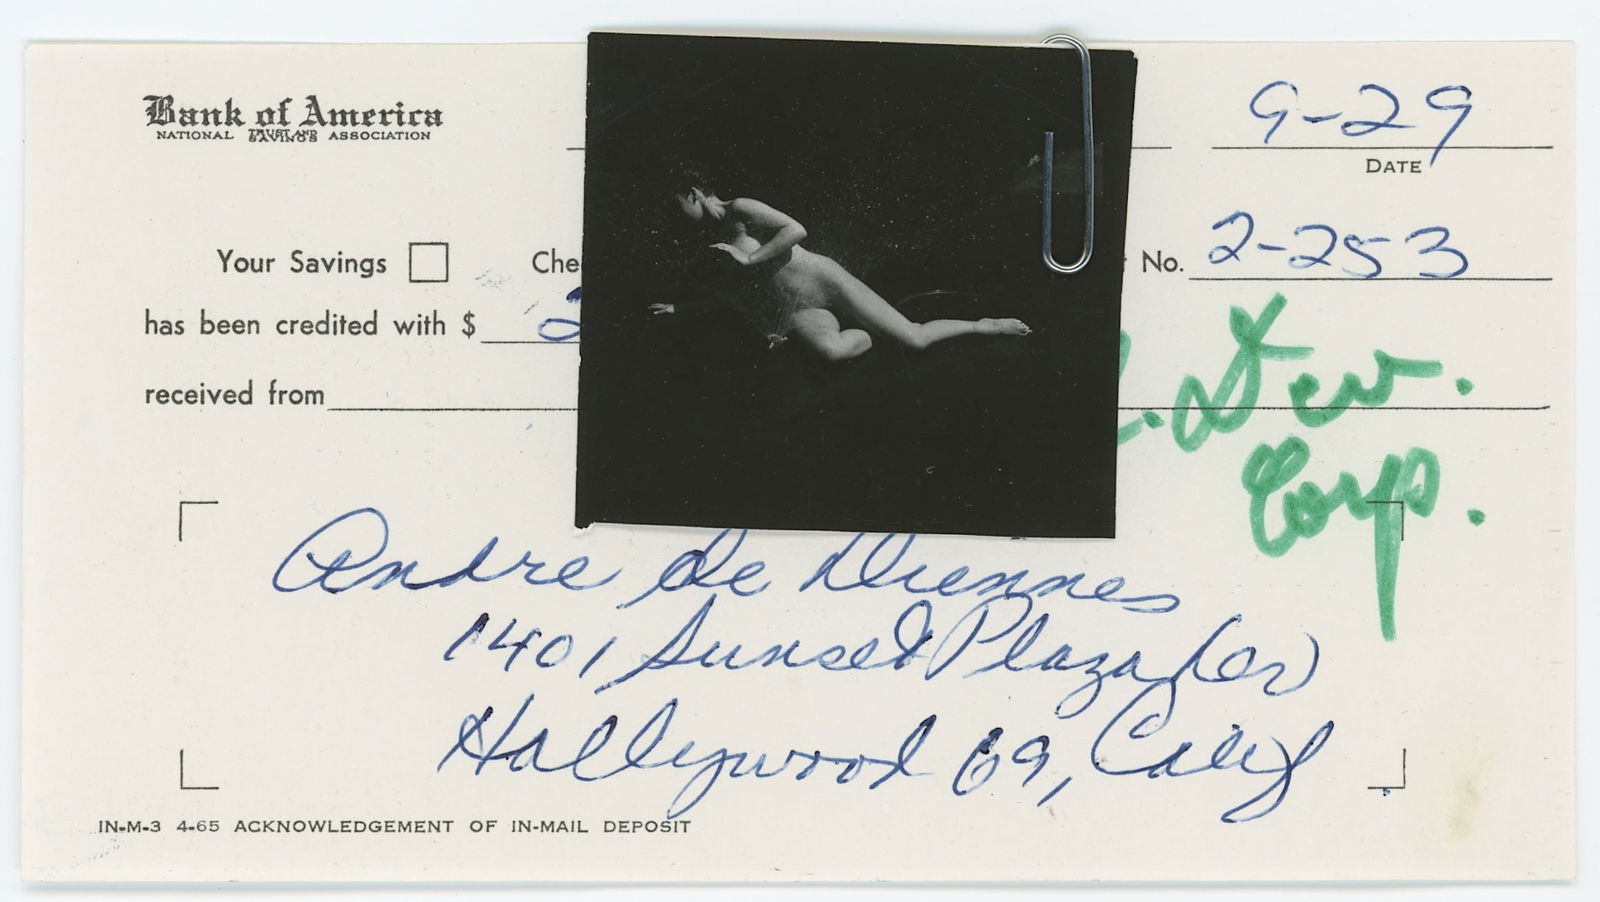 Bank of America
NATIONAL TRUST AND SAVINGS ASSOCIATION
9-29
DATE
Your Savings
No. 2-253
has been credited with $ 2
received from
Dev.
Corp.
Andre de Diennes
1401 Sunset Plaza
Hollywood 69, Calif
IN-M-3 4-65 ACKNOWLEDGEMENT OF IN-MAIL DEPOSIT